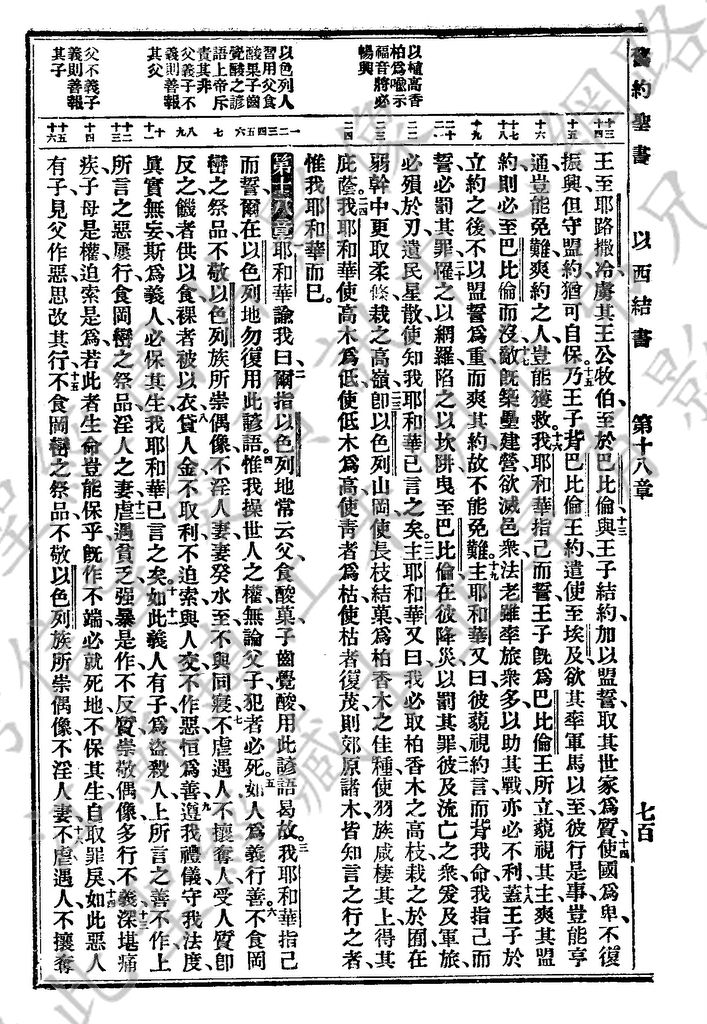 舊約聖書　以西結書　第十八章　七百
十三
十四
十五
十六
十七
十八
十九
二十
二一
二二
二三
二四
一二
三四
五六
七
八九
十
十一
十二
十三
十四
十五
十六
以植高香
柏爲喩示
福音將必
暢興
以色列人
習用父食
酸果子齒
覺酸之諺
語上帝斥
責其非
父義子不
義則善報
其父
父不義子
義則善報
其子
王至耶路撒冷虜其王公牧伯至於巴比倫與王子結約加以盟誓取其世家爲質使國爲卑不復
振興但守盟約猶可自保乃王子背巴比倫王約遣使至埃及欲其率軍馬以至彼行是事豈能亨
通豈能免難爽約之人豈能獲救我耶和華指己而誓王子旣爲巴比倫王所立藐視其主爽其盟
約則必至巴比倫而沒敵旣築壘建營欲滅邑衆法老雖率旅衆多以助其戰亦必不利蓋王子於
立約之後不以盟誓爲重而爽其約故不能免難主耶和華又曰彼藐視約言而背我命我指己而
誓必罰其罪罹之以網羅陷之以坎阱曳至巴比倫在彼降災以罰其罪彼及流亡之衆爰及軍旅
必殞於刃遺民星散使知我耶和華已言之矣主耶和華又曰我必取柏香木之高枝栽之於囿在
弱幹中更取柔條栽之高嶺卽以色列山岡使長枝結菓爲柏香木之佳種使羽族咸棲其上得其
庇蔭我耶和華使高木爲低使低木爲高使靑者爲枯使枯者復茂則郊原諸木皆知言之行之者
惟我耶和華而已
第十八章耶和華諭我曰爾指以色列地常云父食酸菓子齒覺酸用此諺語曷故我耶和華指己
而誓爾在以色列地勿復用此諺語惟我操世人之權無論父子犯者必死如人爲義行善不食岡
巒之祭品不敬以色列族所崇偶像不淫人妻妻癸水至不與同寢不虐遇人不攘奪人受人質卽
反之饑者供以食裸者被以衣貸人金不取利不迫索與人交不作惡恒爲善遵我禮儀守我法度
眞實無妄斯爲義人必保其生我耶和華已言之矣如此義人有子爲盜殺人上所言之善不作上
所言之惡屢行食岡巒之祭品淫人之妻虐遇貧乏强暴是作不反質崇敬偶像多行不義深堪痛
疾子母是權迫索是爲若此者生命豈能保乎旣作不端必就死地不保其生自取罪戾如此惡人
有子見父作惡思改其行不食岡巒之祭品不敬以色列族所崇偶像不淫人妻不虐遇人不攘奪